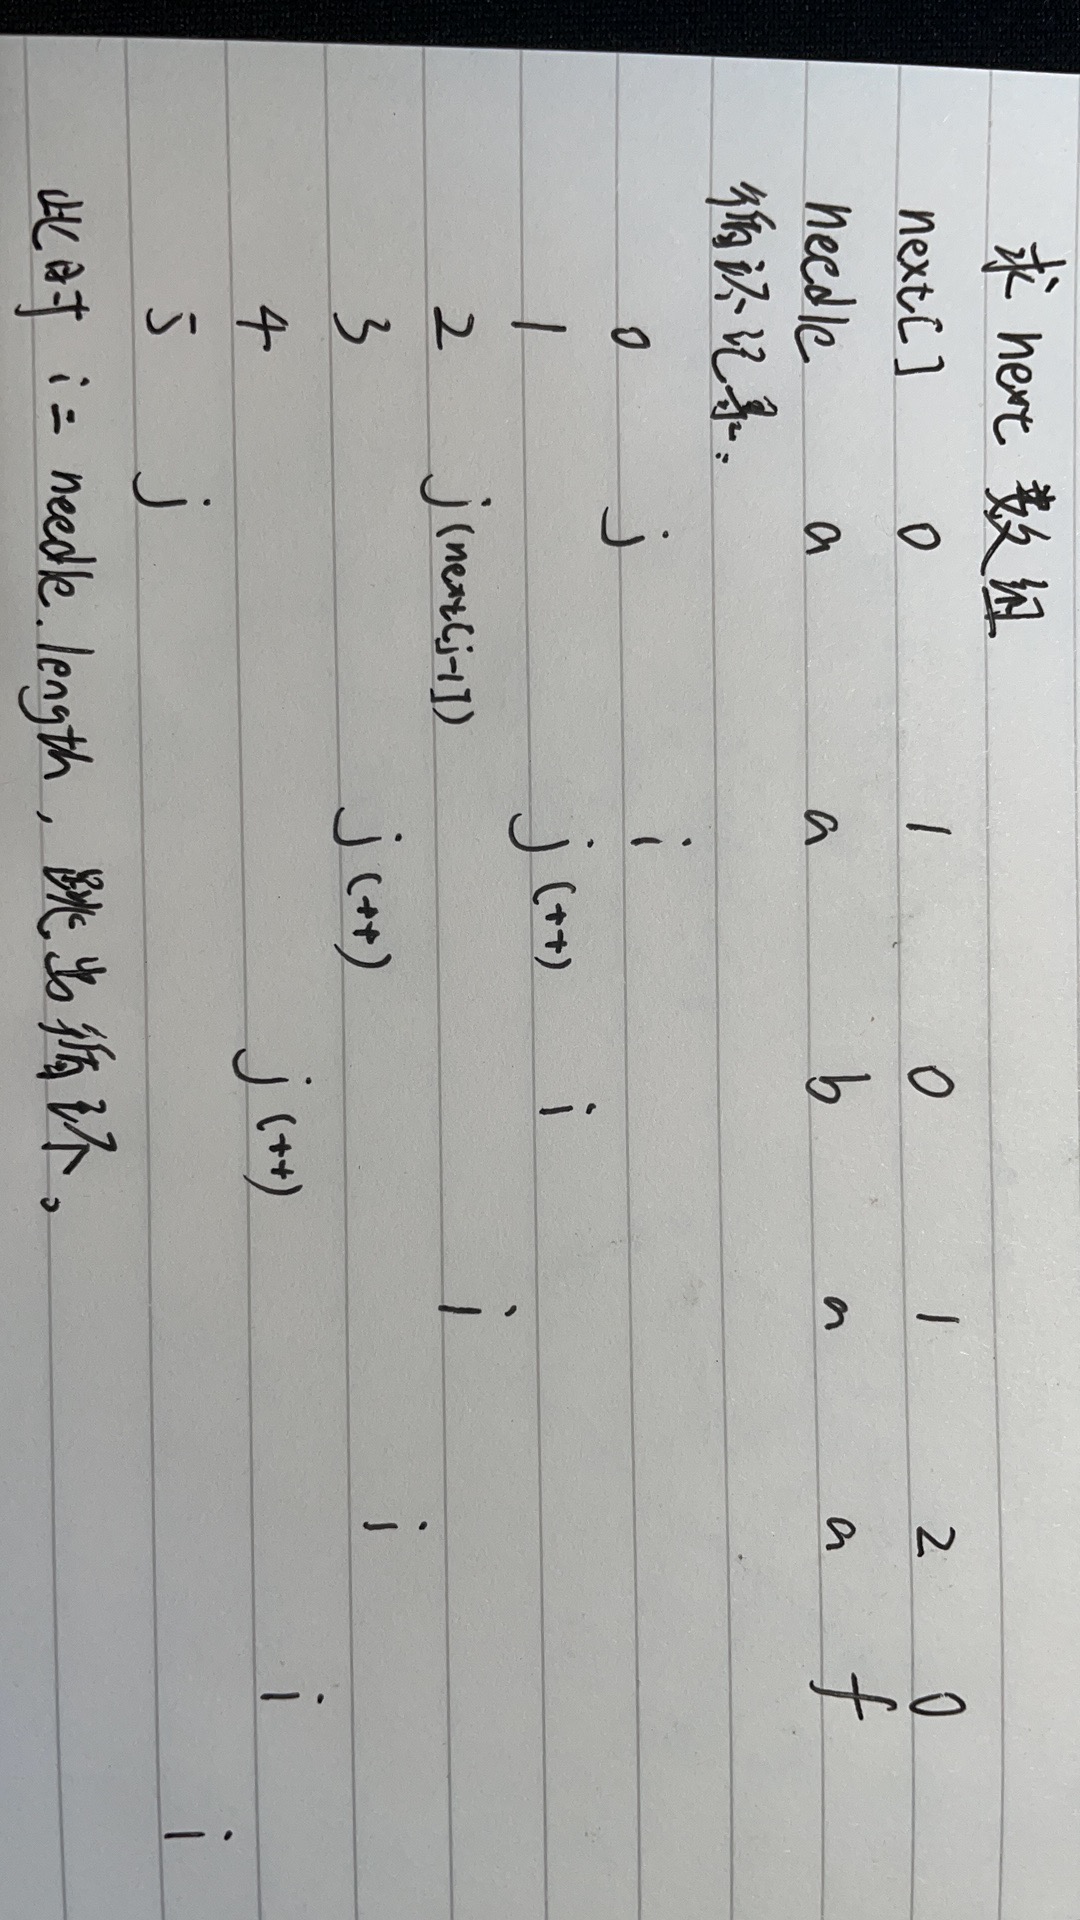 求 next 数组
next[] 0 1 0 1 2 0
needle a a b a a f
循环记录:
0 j i
1 j (++) i
2 j (next[j-1]) i
3 j (++) i
4 j (++) i
5 j i
此时 i = needle.length, 跳出循环。